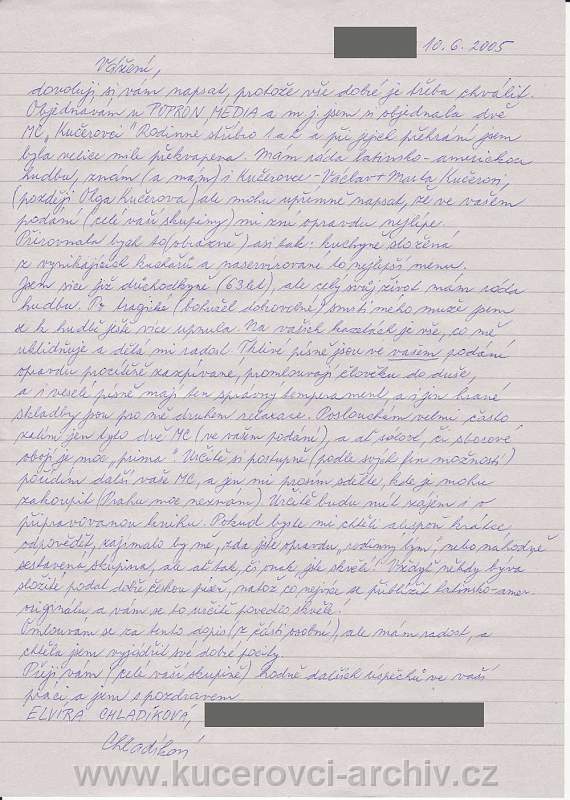 10. 6. 2005
Vážení,
dovoluji si vám napsat, protože vše dobré je třeba chválit.
Objednávám u POPRON MEDIA a m. j. jsem si objednala dvě
MC „Kučerovci“ Rodinné stříbro 1 a 2 a při jejich přehrání jsem
byla velice mile překvapena. Mám ráda latinsko-americkou
hudbu, znám (a mám) i Kučerovce - Václav + Marta Kučerovi,
(později Olga Kučerová) ale mohu upřímně napsat, že ve vašem
podání (celé vaší skupiny) mi zní opravdu nejlépe.
Přirovnala bych to (obrazně) asi tak: kuchyně složená
z vynikajících kuchařů a naservírované to nejlepší menu.
Jsem sice již důchodkyně (63 let), ale celý svůj život mám ráda
hudbu. Po tragické (bohužel dobrovolné) smrti mého muže jsem
se k hudbě ještě více upnula. Na vašich kazetách je vše, co mě
uklidňuje a dělá mi radost. Tklivé písně jsou ve vašem podání
opravdu procítěně zazpívané, promlouvají člověku do duše,
a i veselé písně mají ten správný temperament, a i jen hrané
skladby jsou pro mě druhem relaxace. Poslouchám velmi často,
zatím jen tyto dvě MC (ve vašem podání), a ať sólové, či sborové
obojí je moc „prima“. Určitě si postupně (podle svých fin. možností)
pořídím další vaše MC, a jen mi prosím sdělte, kde je mohu
zakoupit (Prahu moc neznám). Určitě budu mít zájem i o
připravovanou knihu. Pokud byste mi chtěli alespoň krátce
odpovědět, zajímalo by mě, zda jste opravdu „rodinný tým“ nebo náhodně
sestavená skupina, ale ať tak, či onak jste skvělí! Vždyť někdy bývá
složité podat dobře českou píseň, natož co nejvíce se přiblížit latinsko-amer.
originálu a vám se to určitě povedlo skvěle!
Omlouvám se za tento dopis (z části osobní), ale mám radost, a
chtěla jsem vyjádřit své dobré pocity.
Přeji vám (celé vaší skupině) hodně dalších úspěchů ve vaší
práci a jsem s pozdravem
ELVÍRA CHLADÍKOVÁ,
Chladíková
www.kucerovci-archiv.cz